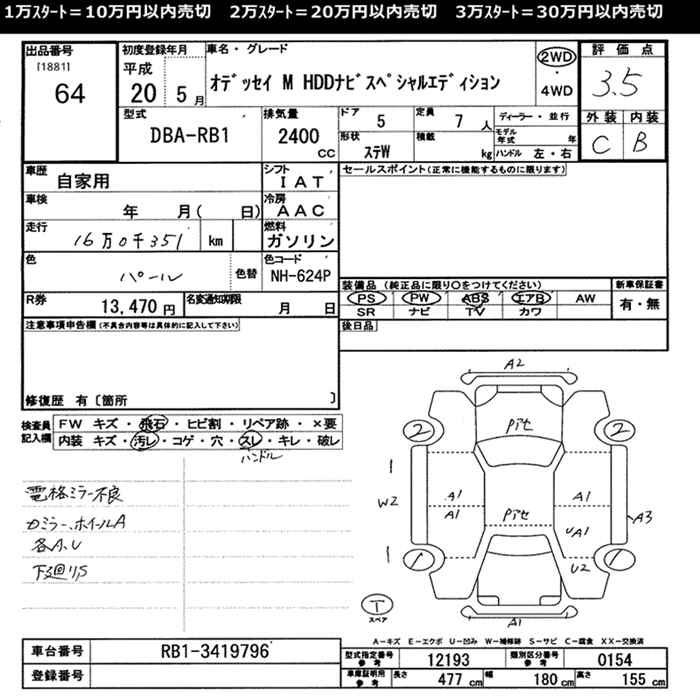 1万ｽﾀｰﾄ＝10万円以内売切　2万ｽﾀｰﾄ＝20万円以内売切　3万ｽﾀｰﾄ＝30万円以内売切
出品番号
[1881]
64
初度登録年月
平成
20 5月
車名・グレード
ｵﾃﾞｯｾｲ M HDDﾅﾋﾞｽﾍﾟｼｬﾙｴﾃﾞｨｼｮﾝ
2WD
・
4WD
評価点
3.5
外装 内装
C B
型式
DBA-RB1
排気量
2400
CC
ドア
5
定員
7人
形状
ｽﾃW
積載
kg
ディーラー・並行
モデル年式 年
ハンドル 左・右
車歴
自家用
シフト
IAT
車検
年 月( 日)
冷房
AAC
走行
16万0千351 km
燃料
ガソリン
色
パール
色替
色コード
NH-624P
R券
13,470円
名変通知期限
月 日
セールスポイント(正常に機能するものに限ります)
装備品 (純正品に限り○をつけてください)
新車保証書
PS PW ABS エアB AW
SR ナビ TV カワ
有・無
後日品
注意事項申告欄(不具合内容等は具体的に記入して下さい)
修復歴 有〔箇所 〕
検査員記入欄
FW キズ・飛石・ヒビ割・リペア跡・×要
内装 キズ・汚レ・コゲ・穴・スレ・キレ・破レ
ハンドル
電格ミラー不良
カミラー、ホイールA
各A、U
下廻りS
A2
2 2
Pｱｾ
W2
A1 A1
A1 UA1
Pｱｾ
A3
U2
1 1
A1
T
スペア
A－キズ E－エクボ U－凹み W－補修跡 S－サビ C－腐食 XX－交換済
車台番号
RB1-3419796
登録番号
型式指定番号
参考
12193
類別区分番号
参考
0154
車庫証明用
参考
長さ 477 cm 幅 180 cm 高さ 155 cm